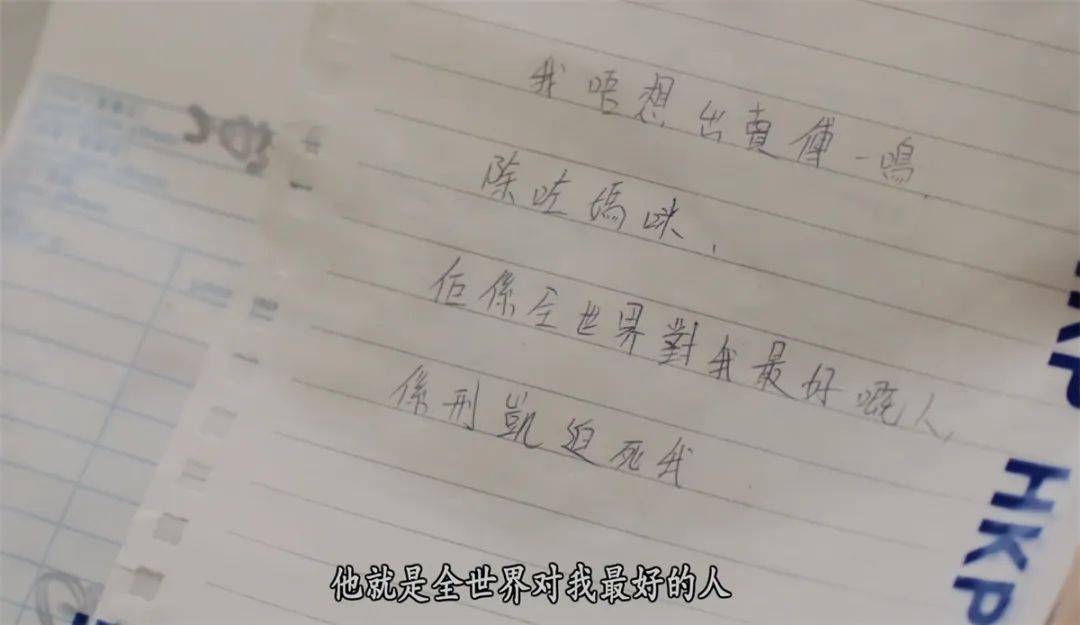 我唔想出賣傅一鳴.
除咗媽咪、
佢係全世界對我最好嘅人,
係刑凱迫死我
HKP
HKP
他就是全世界对我最好的人